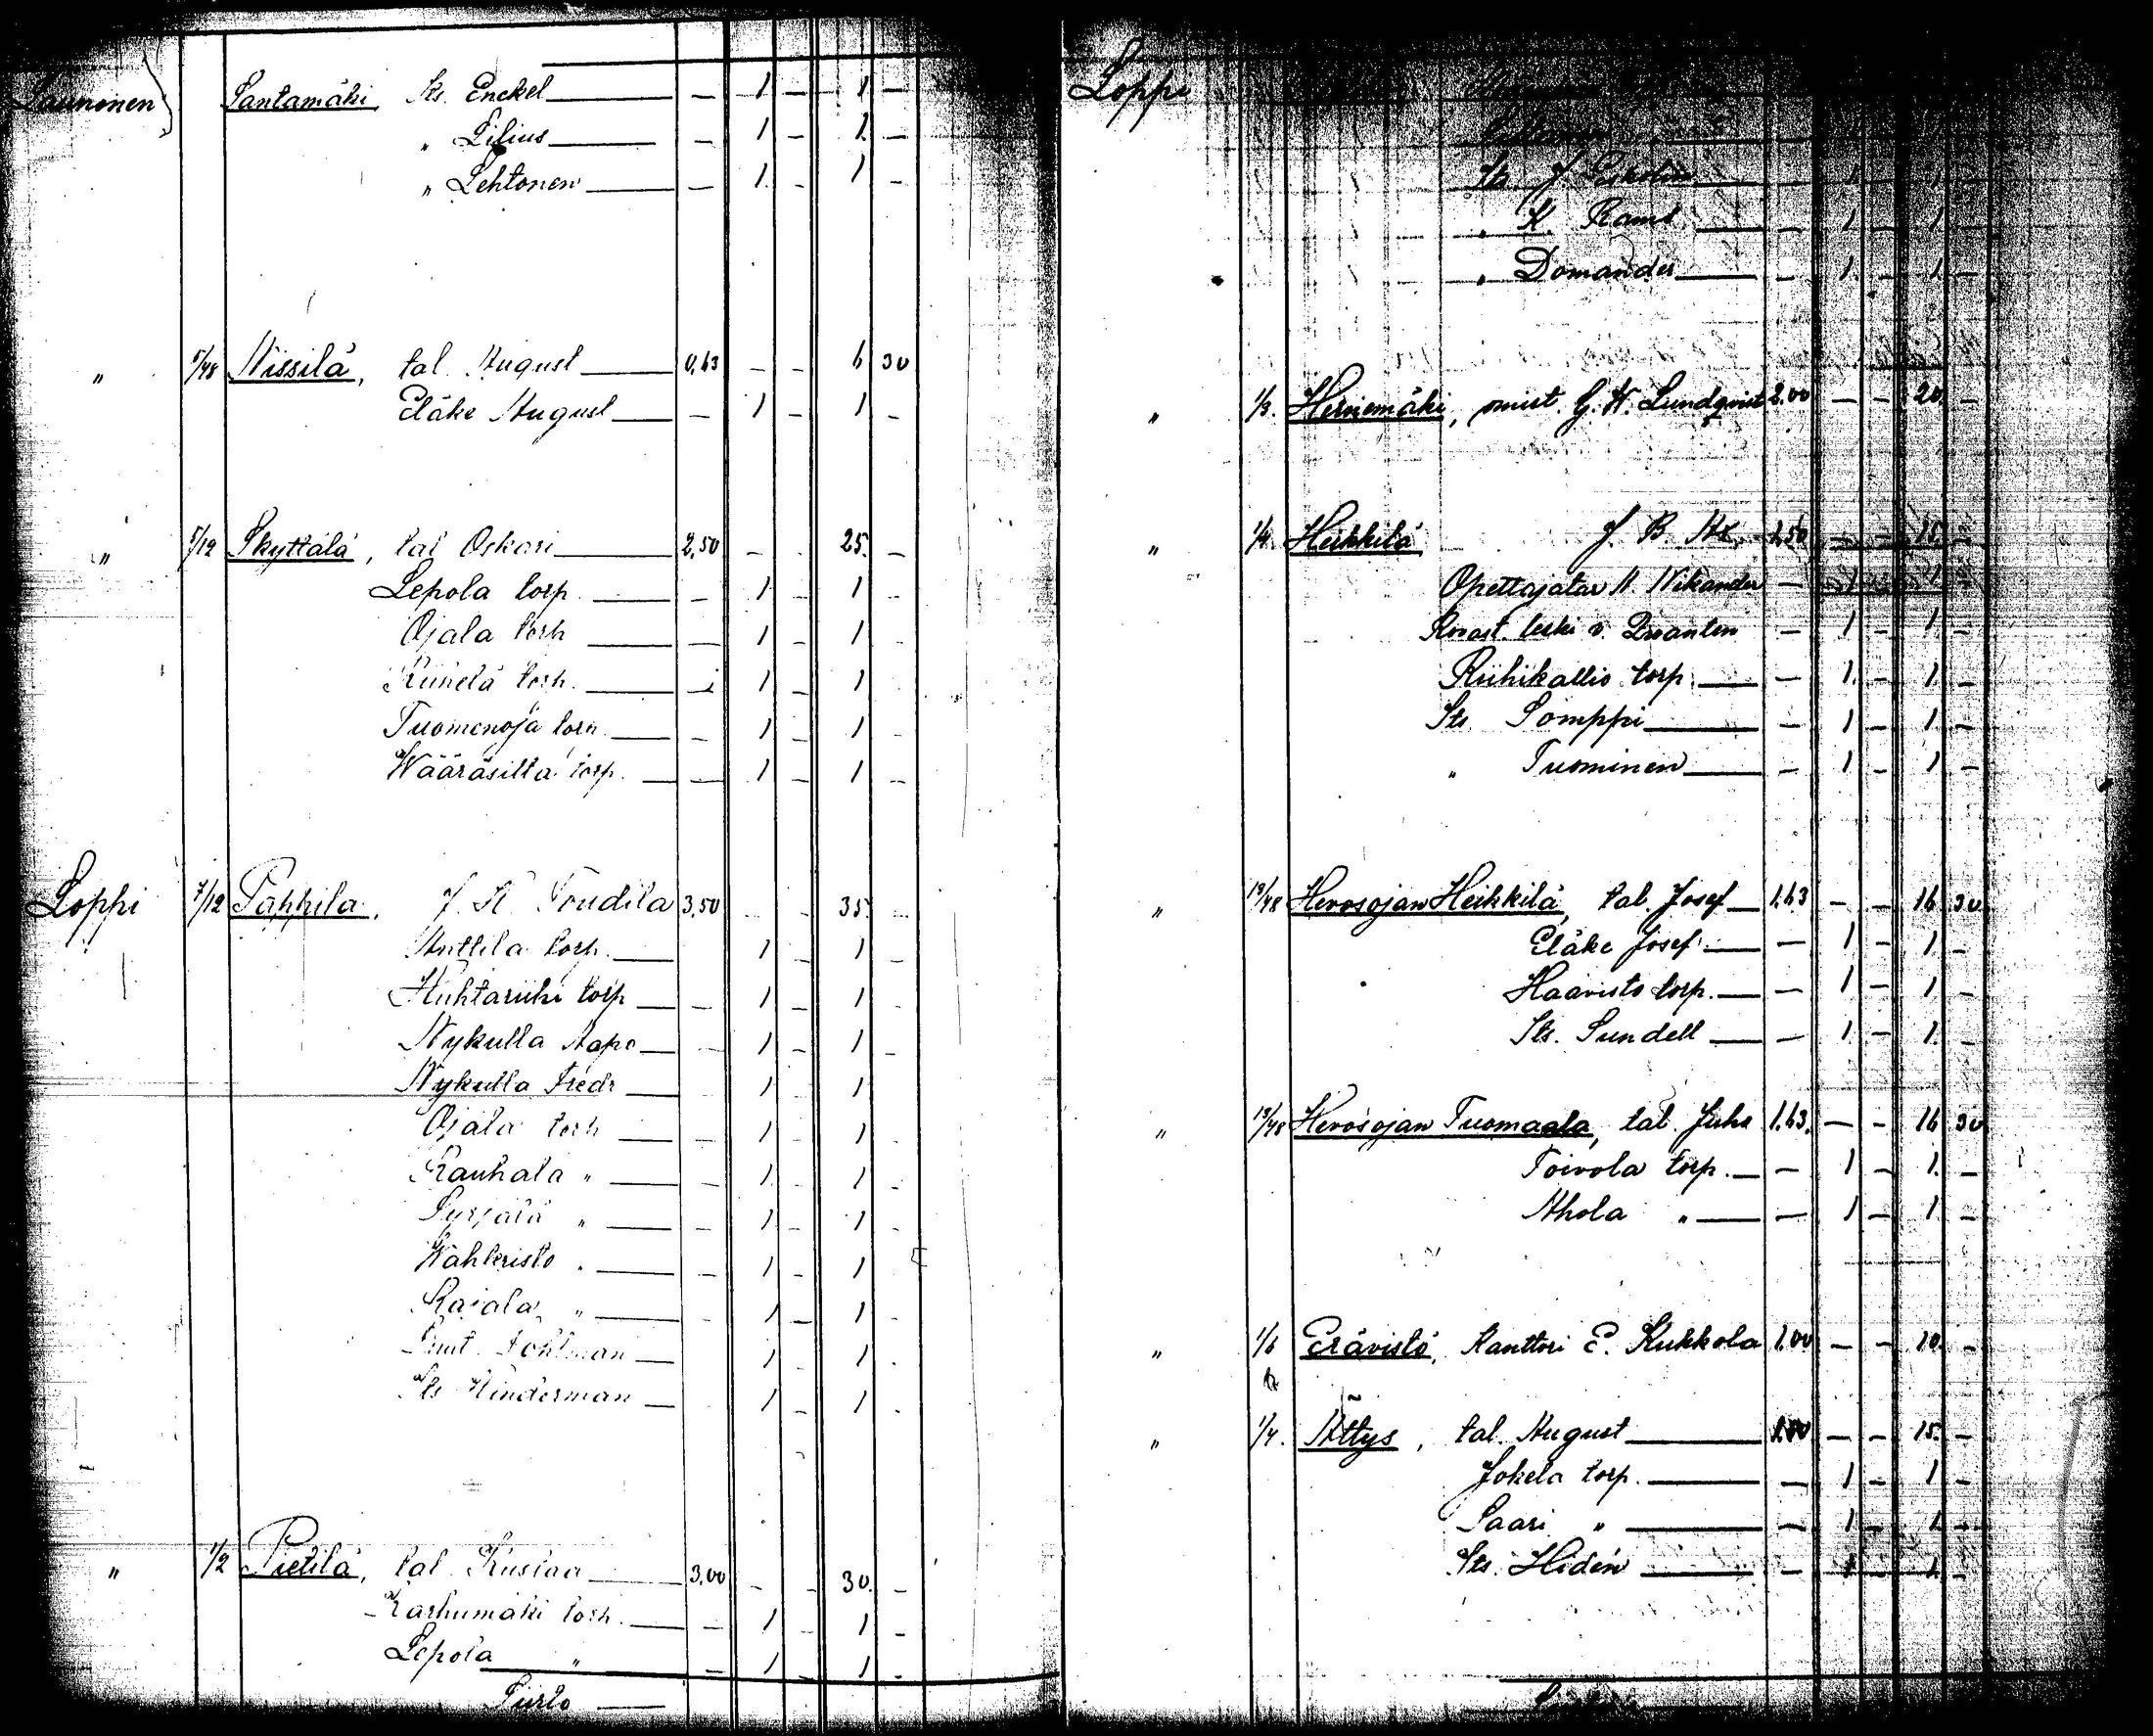 Launonen Santamäki, Its. Enckel — — 1 — 1 —
„ Lilius — — 1 — 1 —
„ Lehtonen — — 1 — 1 —
„ 5/48 Nissilä, tal. August — 0,63 — — 6 30
Eläke August — — 1 — 1 —
„ 5/12 Skyttälä, tal. Oskari — 2,50 — — 25 —
Lepola torp. — — 1 — 1 —
Ojala torp. — — 1 — 1 —
torp. — — 1 — 1 —
Tuomenoja torp. — — 1 — 1 —
Wääräsilta torp. — — 1 — 1 —
Loppi 7/12 Pappila, 3,50 — — 35 —
Anttila torp. — 1 — 1 —
Huhtariihi torp — — 1 — 1 —
Nykulla Aapo — — 1 — 1 —
Nykulla Fredr — 1 — 1
Ojala torp — — 1 — 1 —
Rauhala „ — — 1 — 1 —
Syrjälä „ — — 1 — 1 —
Wahteristo „ — — 1 — 1
Rajala „ — 1 — 1
1 — 1
Its 1 — 1
„ 1/2 Pietilä, tal. Kustaa — 3,00 — — 30 —
Karhumäki torp. — — 1 — 1 —
Lepola „ — 1 — 1 —
Siirto —
Loppi
Its. J. — — 1 — 1 —
„ K. Rams — — 1 — 1 —
„ Domander — — 1 — 1 —
„ 1/3. Hernemäki, omist. G. A. Lundqvist 2.00 — — 20 —
„ 1/4. Heikkilä J. B. 1,50 — — 15 —
Opettajatar A. Wikander — 1 — 1 —
Rovast. leski v. — 1 — 1 —
Riihikallio torp. — — 1 — 1 —
Its. Somppi — — 1 — 1 —
„ Tuominen — — 1 — 1 —
„ 13/48 Hevosojan Heikkilä, tal. Josef — 1.63 — — 16 30
Eläke Josef — — 1 — 1 —
Haavisto torp. — — 1 — 1 —
Its. Sundell — — 1 — 1 —
„ 13/48 Hevosojan Tuomaala, tal. Juho 1.63. — — 16 30
Toivola torp. — — 1 — 1 —
Ahola „ — — 1 — 1 —
„ 1/6 Erävistö, Kanttori E. Kukkola 1.00 — — 10 —
„ 1/4. Attys, tal. August — — — 15 —
Jokela torp. — — 1 — 1 —
Saari „ — — 1 — 1 —
Its. Hidén — — 1 — 1 —